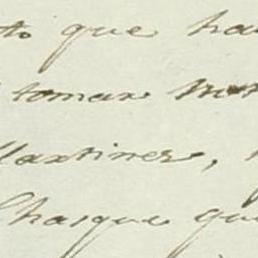 to que ha
tomar
Martinez,
Chasque que